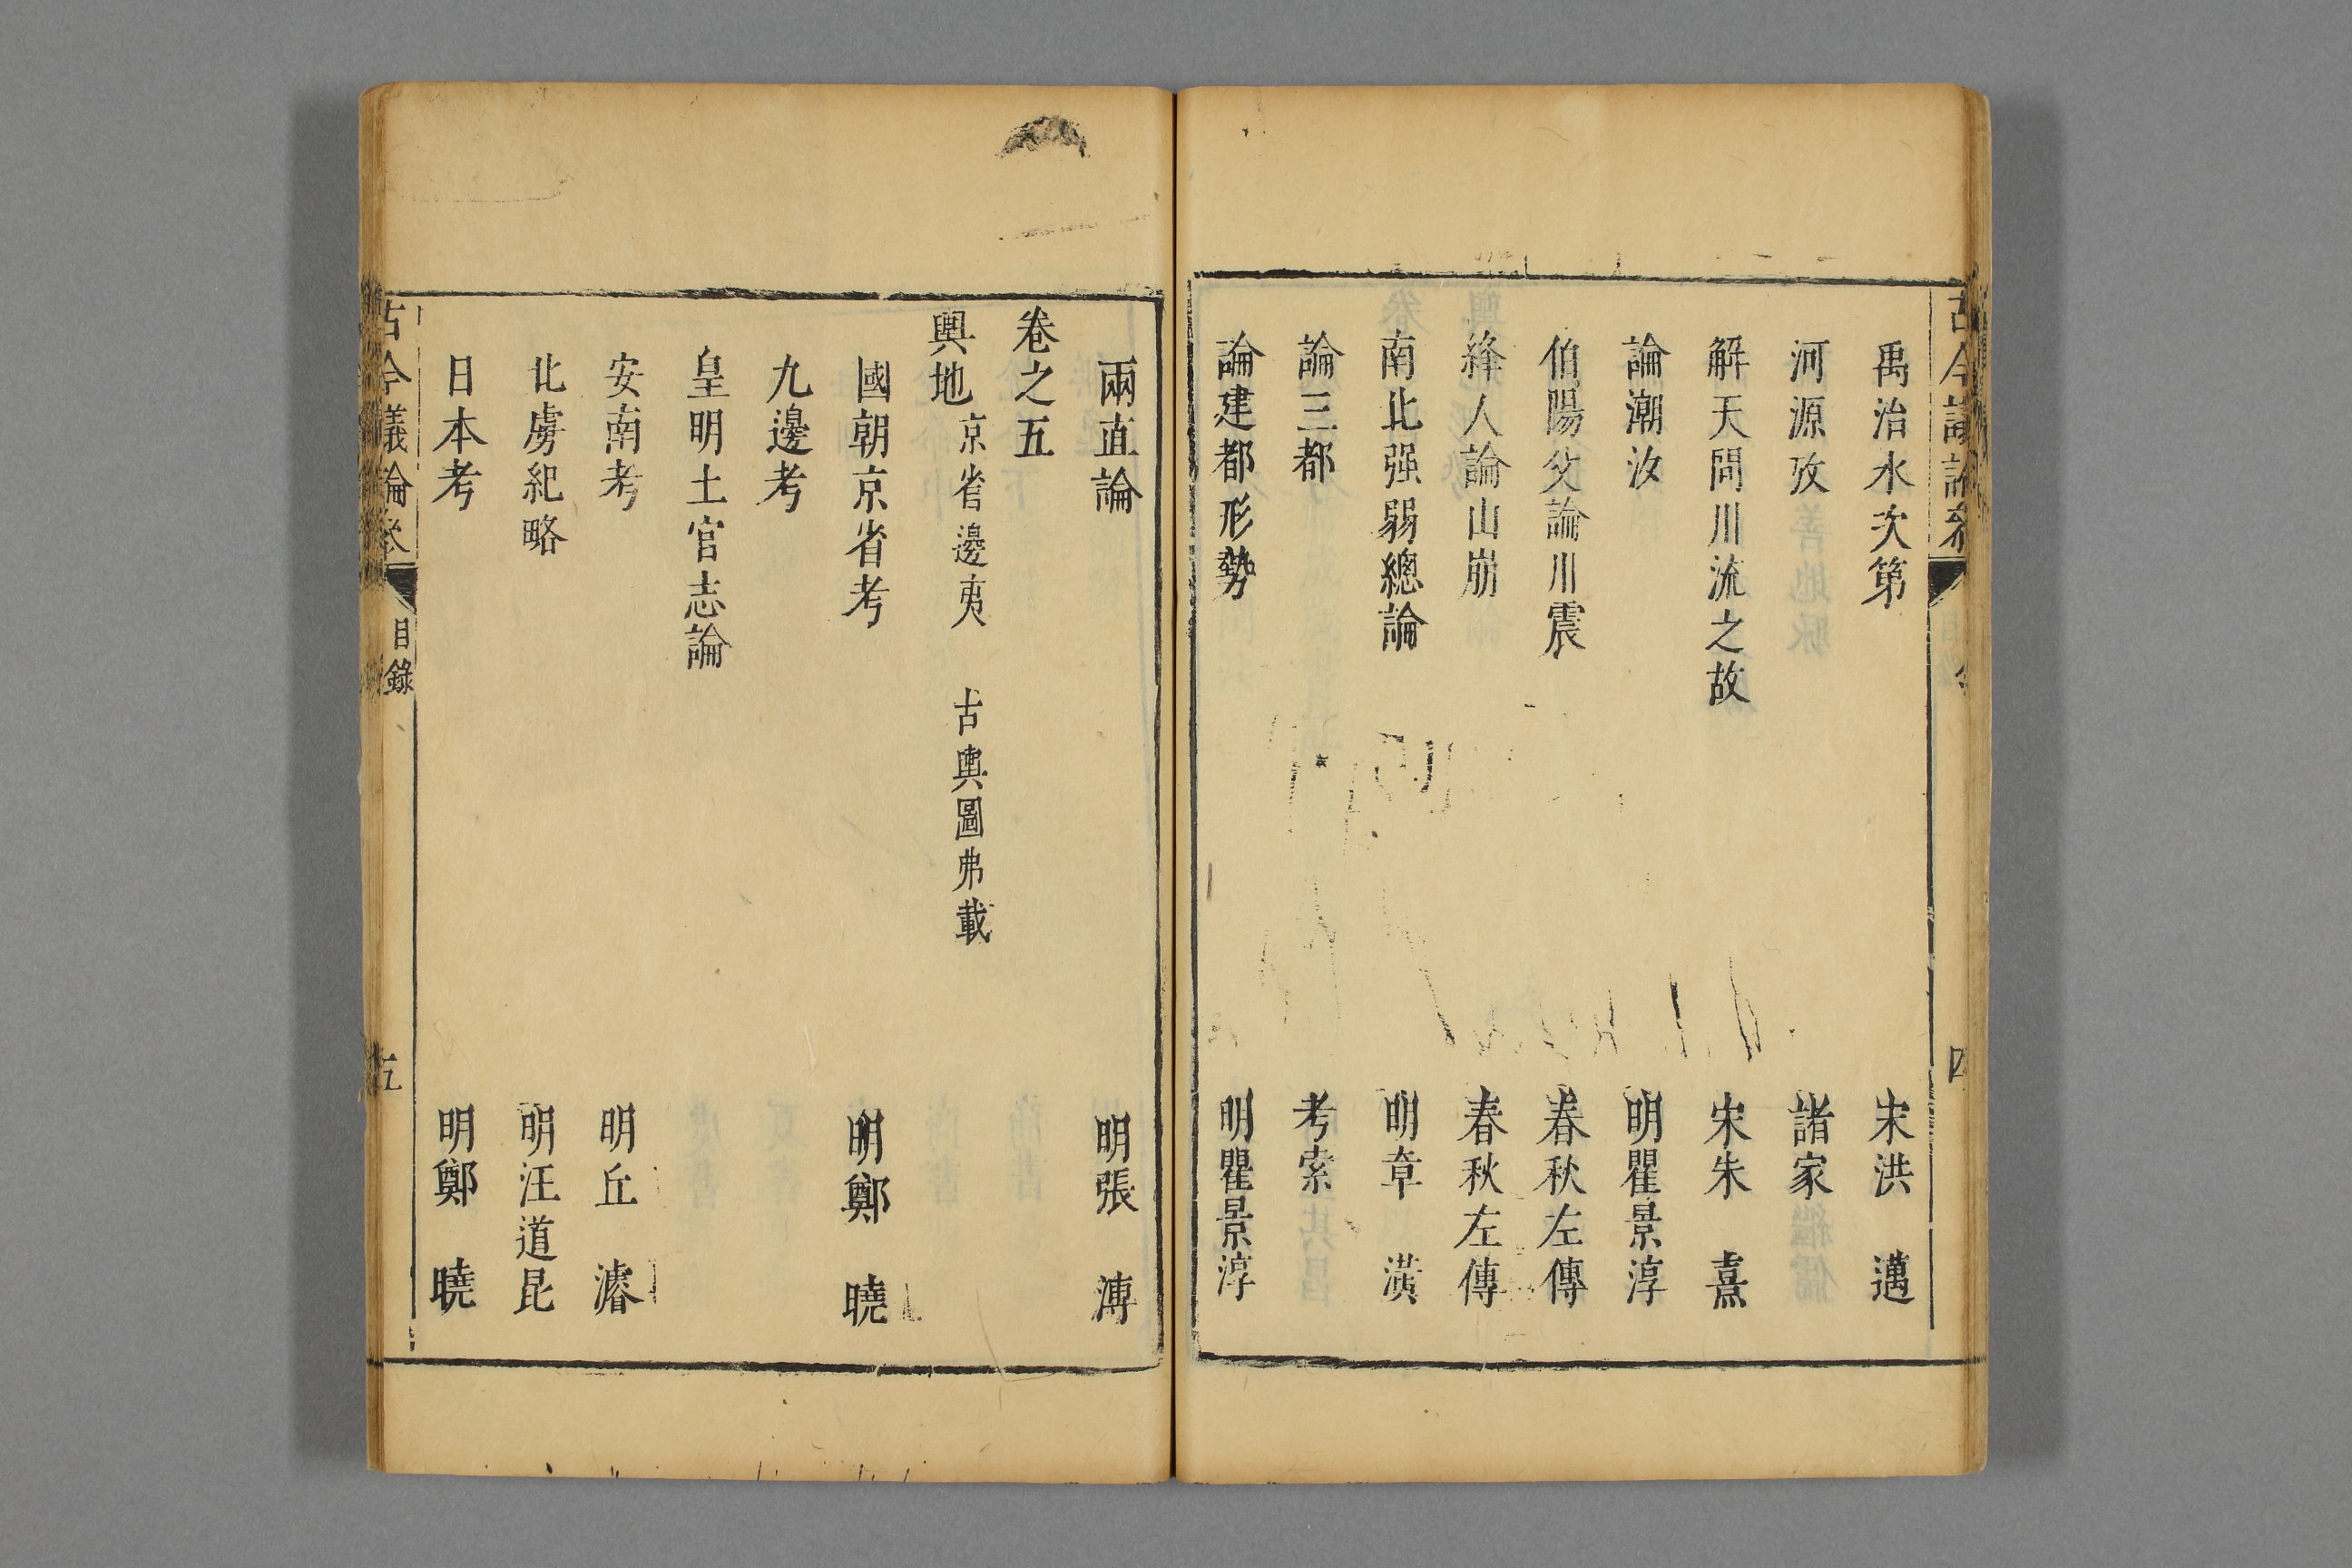 禹治水次第 宋洪 邁
河源攷 諸家
解天問川流之故 宋朱 熹
論潮汐 明瞿景淳
伯陽父論川震 春秋左傳
絳人論山崩 春秋左傳
南北强弱總論 明章 潢
論三都 考索
論建都形勢 明瞿景淳
兩直論 明張 溥
卷之五
輿地 京省邊夷 古輿圖弗載
國朝京省考 明鄭 曉
九邊考
皇明土官志論
安南考 明丘 濬
北虜紀略 明汪道昆
日本考 明鄭 曉
古今議論參 目錄 五